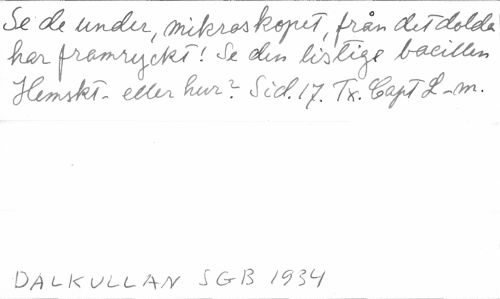 Se de under, mikroskopet, från det dolda
har framryckt! Se den listige bacillen
Hemskt - eller hur? Sid. 17. Tx. Capt L-m.
DALKULLAN SGB 1934